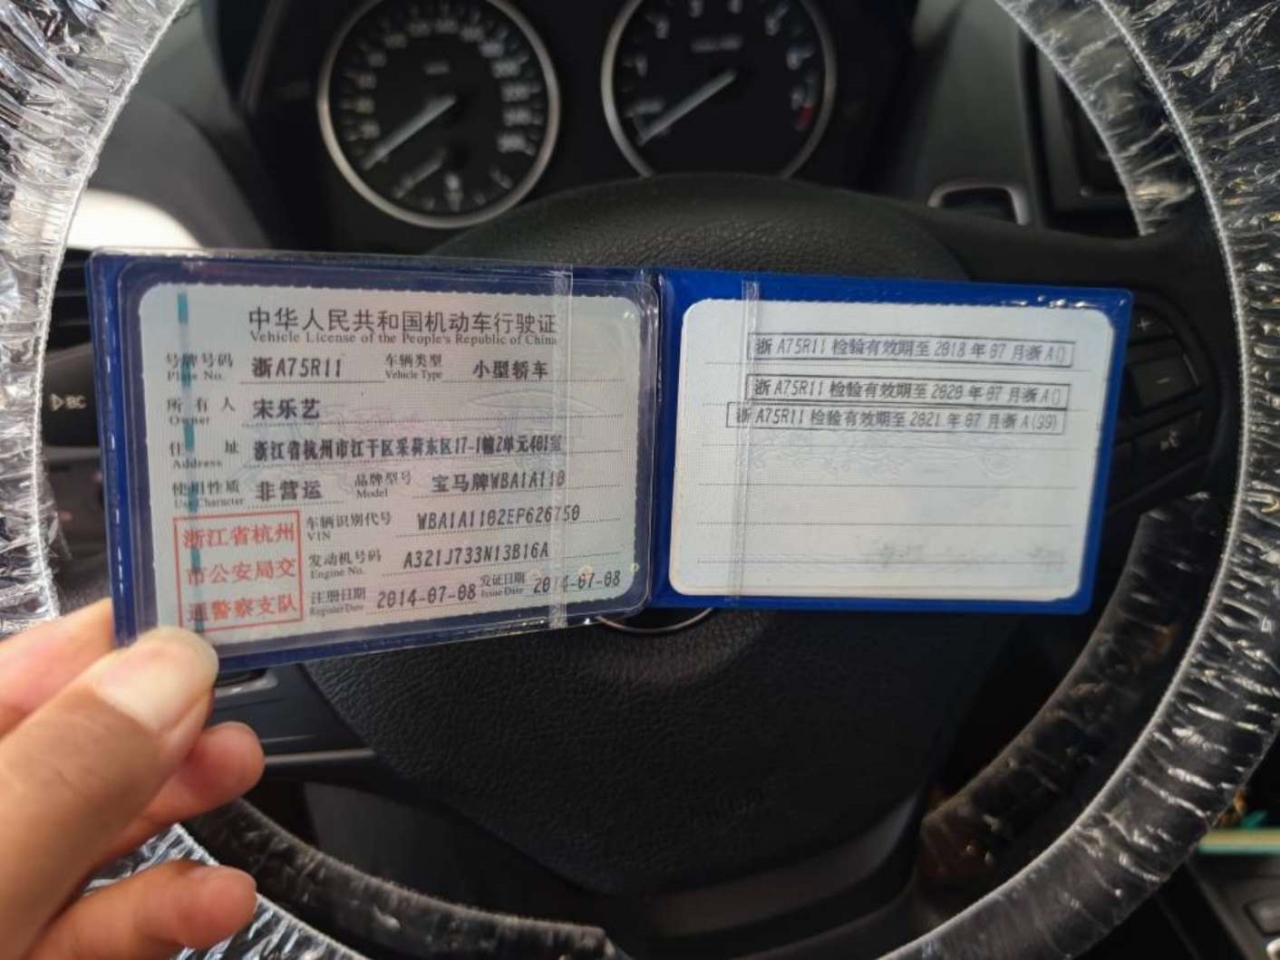 中华人民共和国机动车行驶证
Vehicle License of the People's Republic of China
号牌号码 浙A75R11 车辆类型 小型轿车
Plate No. Vehicle Type
所有人 宋乐艺
Owner
住址 浙江省杭州市江干区采荷东区17-1幢2单元401室
Address
使用性质 非营运 品牌型号 宝马牌WBA1A110
Use Character Model
浙江省杭州市公安局交通警察支队
车辆识别代号 WBA1A1102EP626750
VIN
发动机号码 A321J733N13B16A
Engine No.
注册日期 2014-07-08 发证日期 2014-07-08
Register Date Issue Date
浙A75R11 检验有效期至 2018 年 07 月浙A()
浙A75R11 检验有效期至 2020 年 07 月浙A()
浙A75R11 检验有效期至 2021 年 07 月浙A(99)